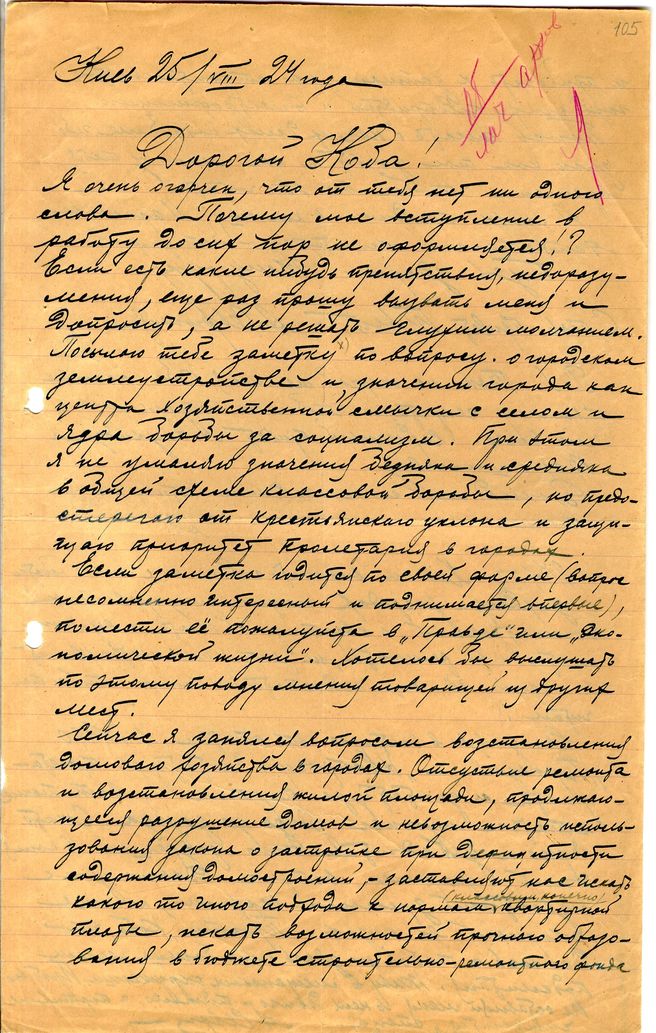 105
Киев 25/VIII 24 года
арх
Дорогой Коба!
Я очень огорчен, что от тебя нет ни одного
слова. Почему мое вступление в
работу до сих пор не оформляется!?
Если есть какие нибудь препятствия, недоразу-
мения, еще раз прошу вызвать меня и
допросить, а не решать глухим молчанием.
Посылаю тебе заметку х) по вопросу о городском
землеустройстве и значении города как
центра хозяйственной смычки с селом и
ядра борьбы за социализм. При этом
я не умаляю значения бедняка и середняка
в общей схеме классовой борьбы, но предо-
стерегаю от крестьянского уклона и защи-
щаю приоритет пролетария в городах.
Если заметка годится по своей форме (вопрос
несомненно интересный и поднимается впервые),
помести её пожалуйста в „Правде" или „Эко-
номической жизни". Хотелось бы выслушать
по этому поводу мнения товарищей из других
мест.
Сейчас я занялся вопросом возстановления
домового хозяйства в городах. Отсутствие ремонта
и возстановления жилой площади, продолжаю-
щееся разрушение домов и невозможность исполь-
зования закона о застройке при дефицитности
содержания домостроений, - заставляют нас искать
какого то иного подхода к нормам (классовым конечно) квартирной
платы, искать возможностей прочного образо-
вания в бюджете строительно-ремонтного фонда